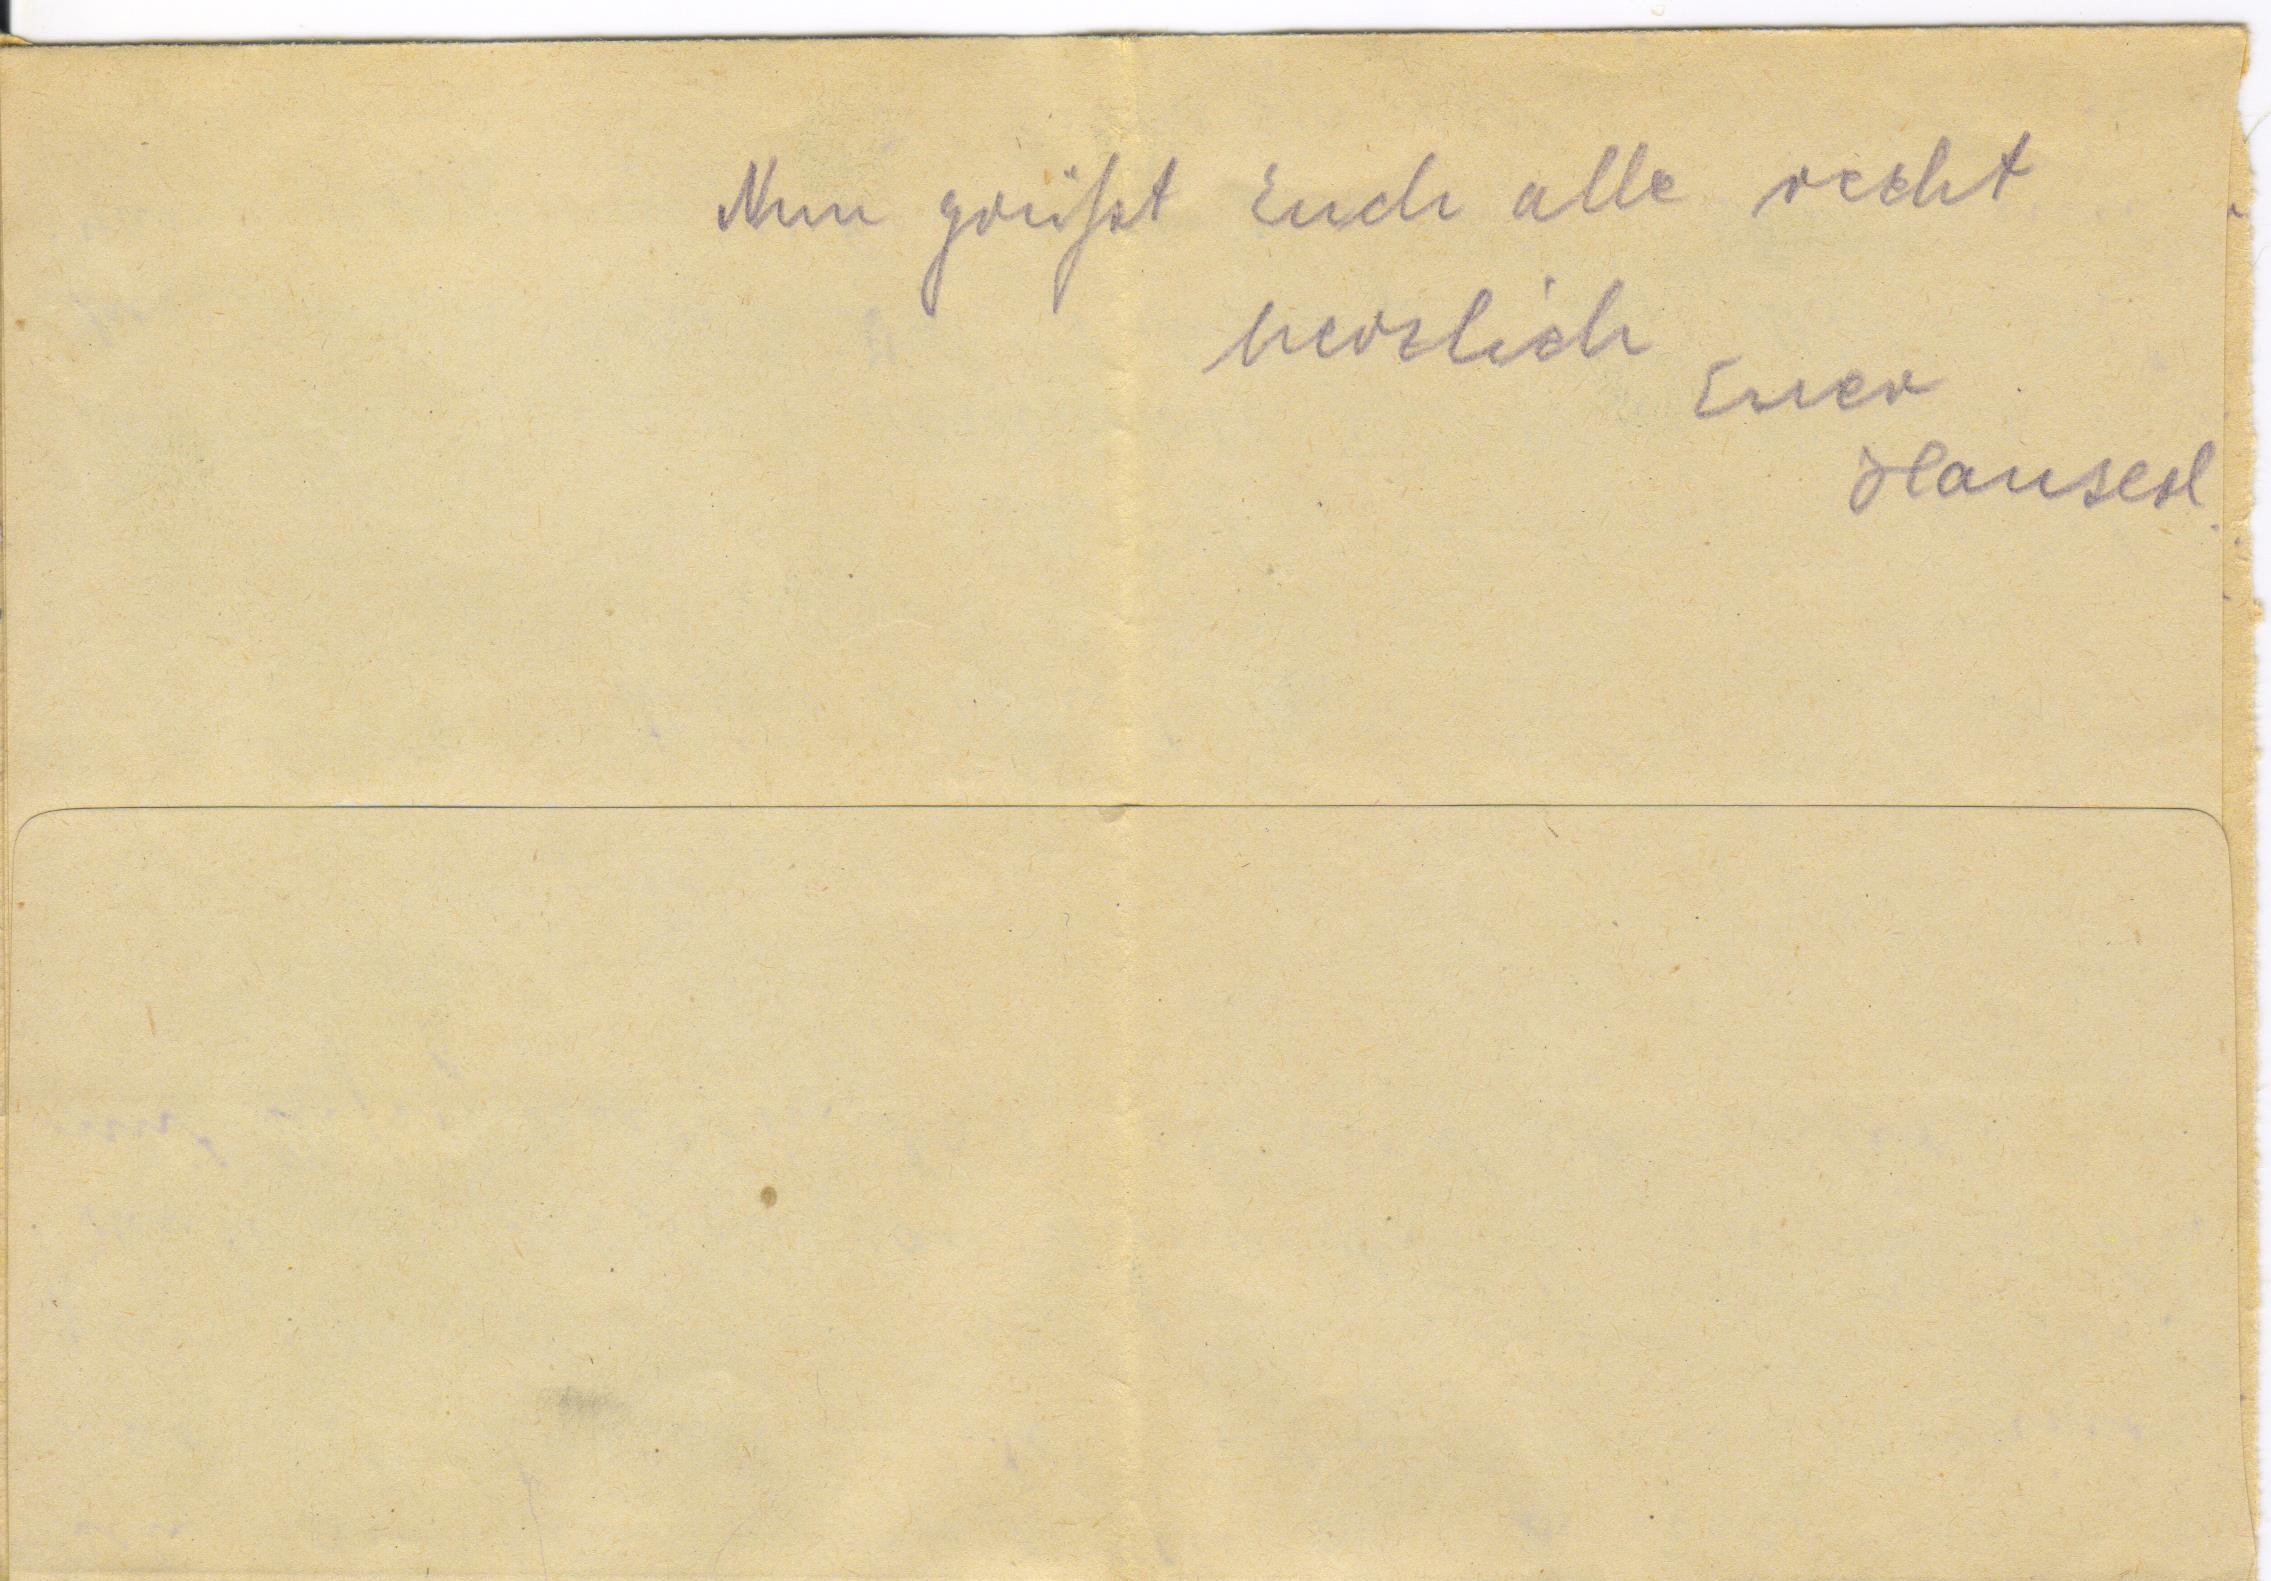 Nun grüßt Euch alle recht
herzlich
Euer
Hanserl.